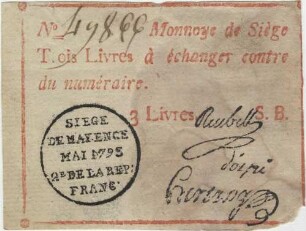 No 47866 Monnoye de Siège
T.ois Livres à échanger contre
du numéraire.
3 Livres S. B.
SIEGE
DE MAYENCE
MAI 1793
2E DE LA REP:
FRANC.
Reubell